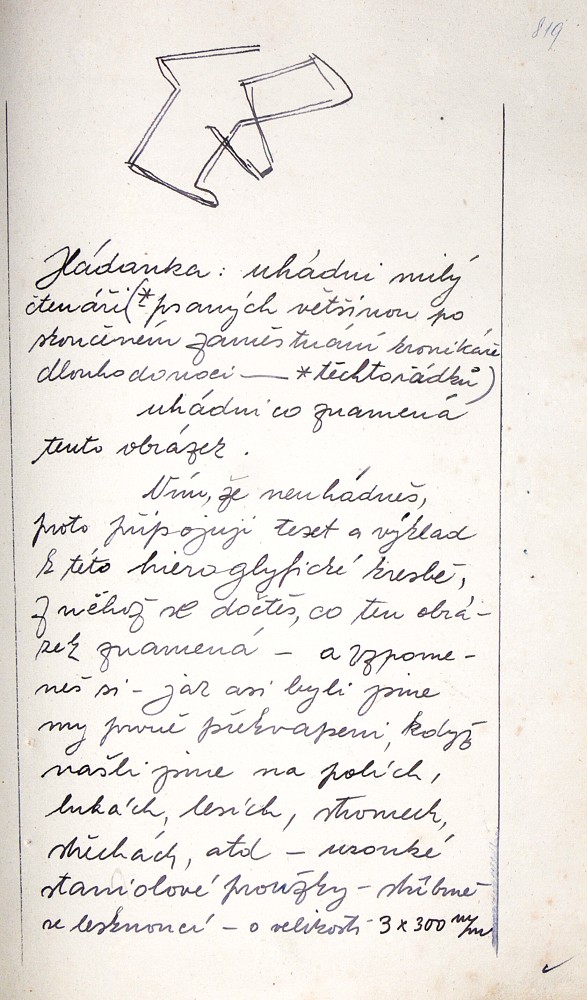 819
Hádanka: uhádni milý
čtenáři (* psaných většinou po
skončeném zaměstnání kronikáře
dlouho do noci — * těchto řádků)
uhádni co znamená
tento obrázek.
Vím, že neuhádneš,
proto připojuji text a výklad
k této hieroglyfické kresbě,
z něhož se dočteš, co ten obrá-
zek znamená – a vzpome-
neš si – jak asi byli jsme
my prvně překvapeni, když
našli jsme na polích,
lukách, lesích, stromech,
střechách, atd – uzonké
staniolové proužky – stříbrně
se lesknoucí – o velikosti 3 x 300 m/m